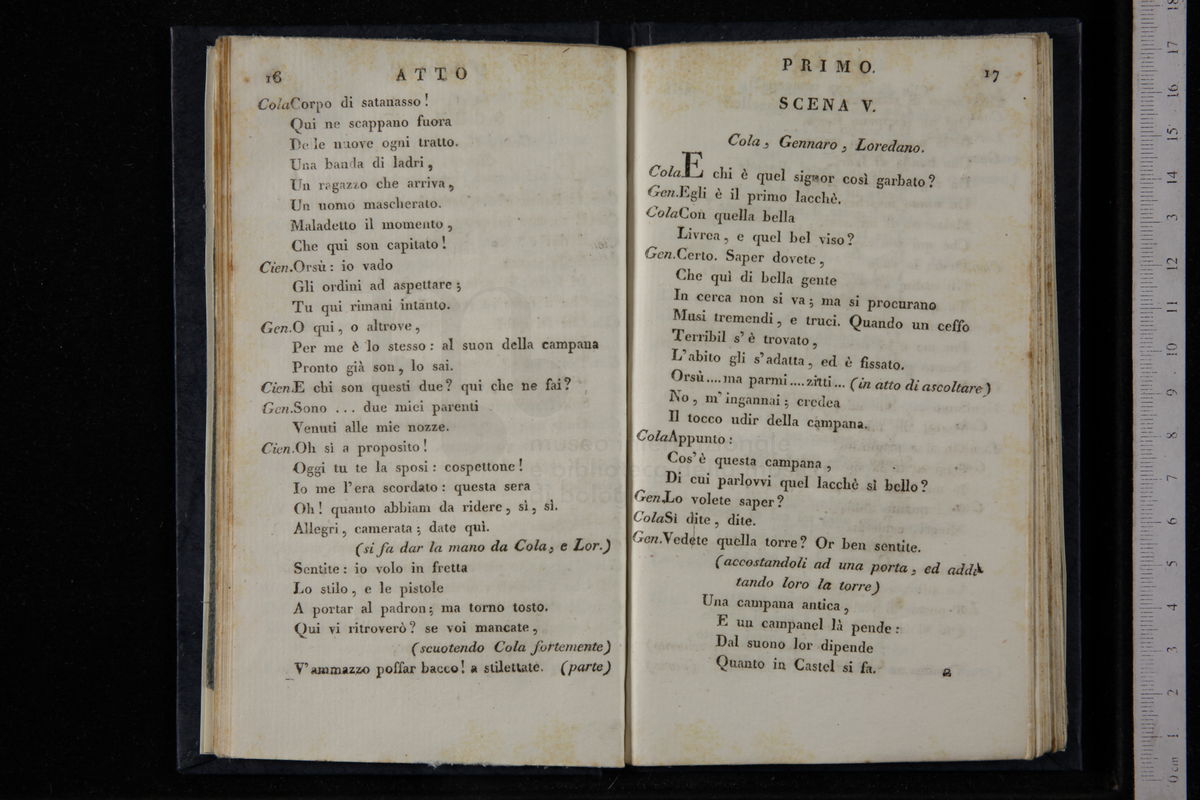 16
ATTO
Cola Corpo di satanasso!
Qui ne scappano fuora
Delle nuove ogni tratto.
Una banda di ladri,
Un ragazzo che arriva,
Un uomo mascherato.
Maladetto il momento,
Che qui son capitato!
Cien. Orsù: io vado
Gli ordini ad aspettare;
Tu qui rimani intanto.
Gen. O qui, o altrove,
Per me è lo stesso: al suon della campana
Pronto già son, lo sai.
Cien. E chi son questi due? qui che ne fai?
Gen. Sono ... due miei parenti
Venuti alle mie nozze.
Cien. Oh sì a proposito!
Oggi tu te la sposi: cospettone!
Io me l'era scordato: questa sera
Oh! quanto abbiam da ridere, sì, sì.
Allegri, camerata; date quì.
(si fa dar la mano da Cola, e Lor.)
Sentite: io volo in fretta
Lo stilo, e le pistole
A portar al padron; ma torno tosto.
Qui vi ritroverò? se voi mancate,
(scuotendo Cola fortemente)
V'ammazzo poffar bacco! a stilettate. (parte)
PRIMO.
17
SCENA V.
Cola, Gennaro, Loredano.
Cola. E chi è quel signor così garbato?
Gen. Egli è il primo lacchè.
Cola Con quella bella
Livrea, e quel bel viso?
Gen. Certo. Saper dovete,
Che quì di bella gente
In cerca non si va; ma si procurano
Musi tremendi, e truci. Quando un ceffo
Terribil s'è trovato,
L'abito gli s'adatta, ed è fissato.
Orsù .... ma parmi .... zitti ... (in atto di ascoltare)
No, m'ingannai; credea
Il tocco udir della campana.
Cola Appunto:
Cos'è questa campana,
Di cui parlovvi quel lacchè sì bello?
Gen. Lo volete saper?
Cola Sì dite, dite.
Gen. Vedete quella torre? Or ben sentite.
(accostandoli ad una porta, ed addi-
tando loro la torre)
Una campana antica,
E un campanel là pende:
Dal suono lor dipende
Quanto in Castel si fa.